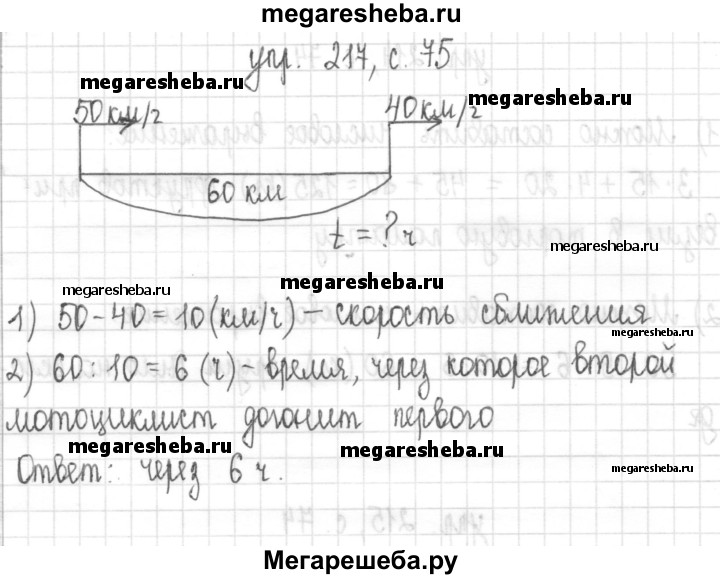 megaresheba.ru
упр. 217, с. 75
megaresheba.ru
megaresheba.ru
50 км/ч
40 км/ч
60 км
t = ? ч
megaresheba.ru
megaresheba.ru
megaresheba.ru
1) 50 - 40 = 10 (км/ч) – скорость сближения
megaresheba.ru
2) 60 : 10 = 6 (ч) – время, через которое второй
мотоциклист догонит первого
megaresheba.ru
megaresheba.ru
Ответ: через 6 ч.
megaresheba.ru
Мегарешеба.ру